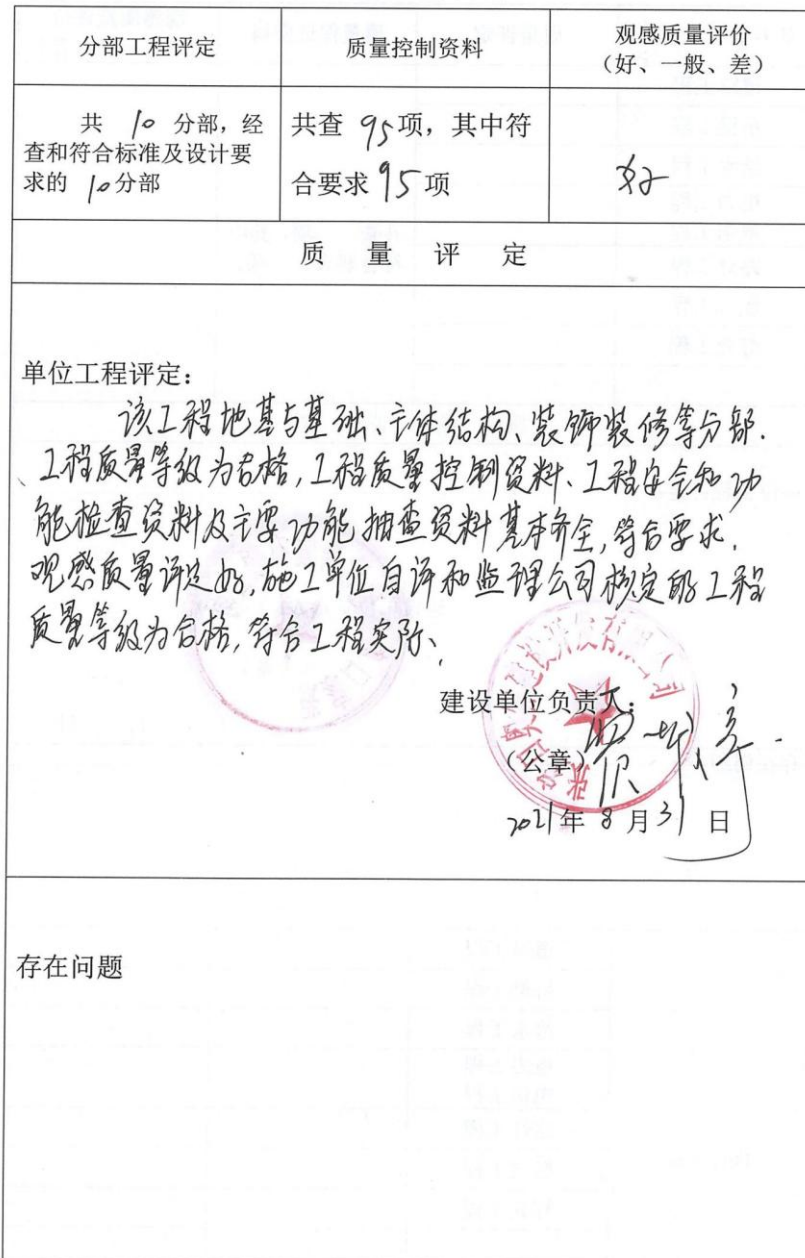 分部工程评定
质量控制资料
观感质量评价
（好、一般、差）
共 10 分部，经
查和符合标准及设计要
求的 10分部
共查 95项，其中符
合要求 95项
好
质 量 评 定
单位工程评定：
该工程地基与基础、主体结构、装饰装修等分部.
工程质量等级为合格,工程质量控制资料、工程安全和功
能检查资料及主要功能抽查资料基本齐全,符合要求.
观感质量评定好,施工单位自评和监理公司核定的工程
质量等级为合格,符合工程实际、
建设单位负责人：
（公章）
2021年 8 月 31 日
存在问题